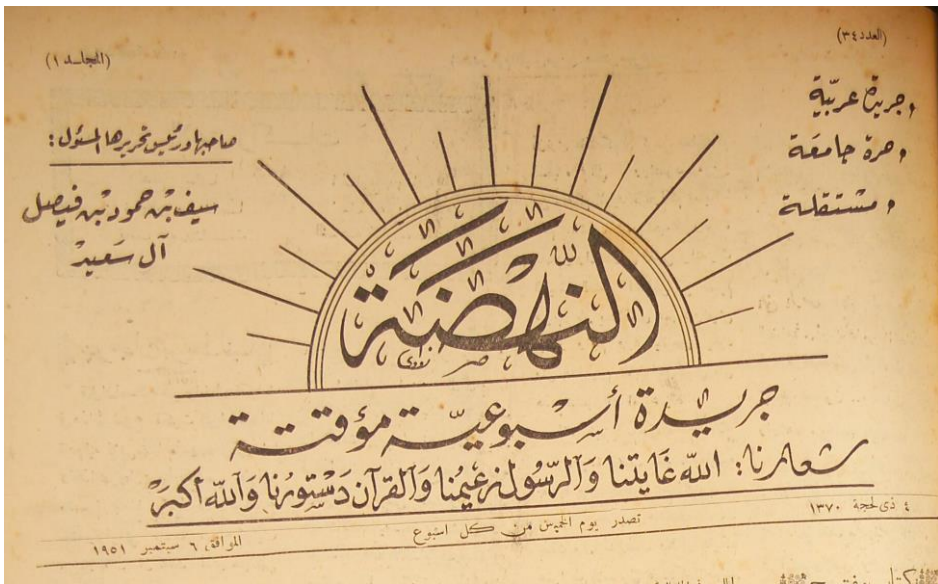 (العدد ٣٤)
(المجلد ١)
جريدة عربيّة
حرة جامعة
مستقلة
صاحبها ورئيس تحريرها المسئول:
سيف بن حمود بن فيصل
آل سعيد
النهضة
جريدة أسبوعيّة مؤقتة
شعارنا: الله غايتنا والرسول زعيمنا والقرآن دستورنا والله أكبر
٤ ذى الحجة ١٣٧٠
تصدر يوم الخميس من كل اسبوع
الموافق ٦ سبتمبر ١٩٥١